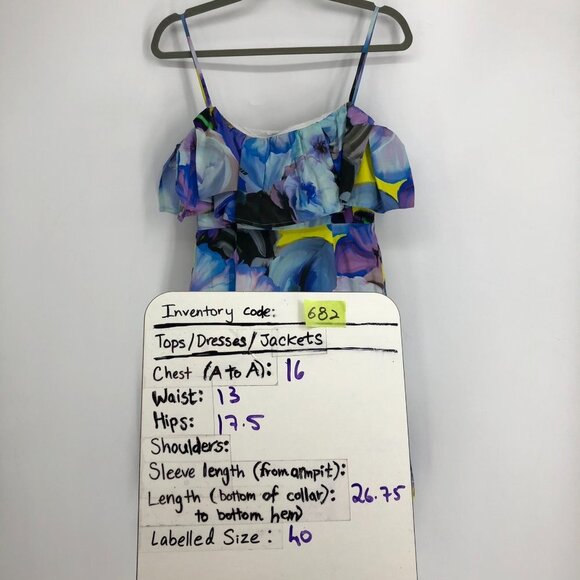 Inventory code: 682
Tops/Dresses/Jackets
Chest (A to A): 16
Waist: 13
Hips: 17.5
Shoulders:
Sleeve length (from armpit):
Length (bottom of collar): 26.75
to bottom hem)
Labelled Size: 40